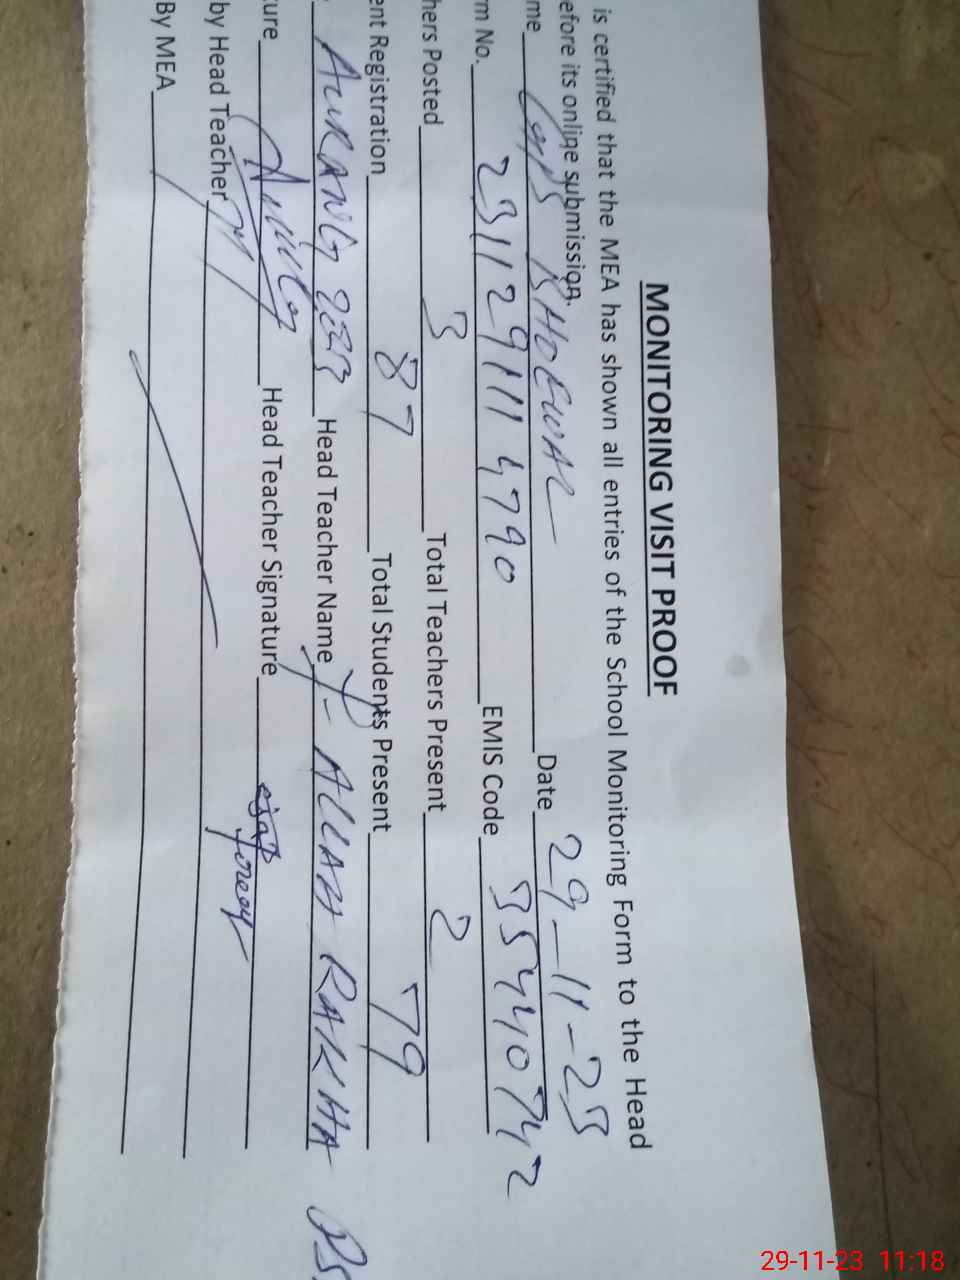 MONITORING VISIT PROOF
is certified that the MEA has shown all entries of the School Monitoring Form to the Head
efore its online submission.
me GPS KHOEWAL Date 29-11-23
rm No. 2311291114790 EMIS Code 35440742
hers Posted 3 Total Teachers Present 2
ent Registration 87 Total Students Present 79
AURANG ZEB Head Teacher Name ALLAH RAKHA
ture Head Teacher Signature
by Head Teacher
By MEA
29-11-23 11:18